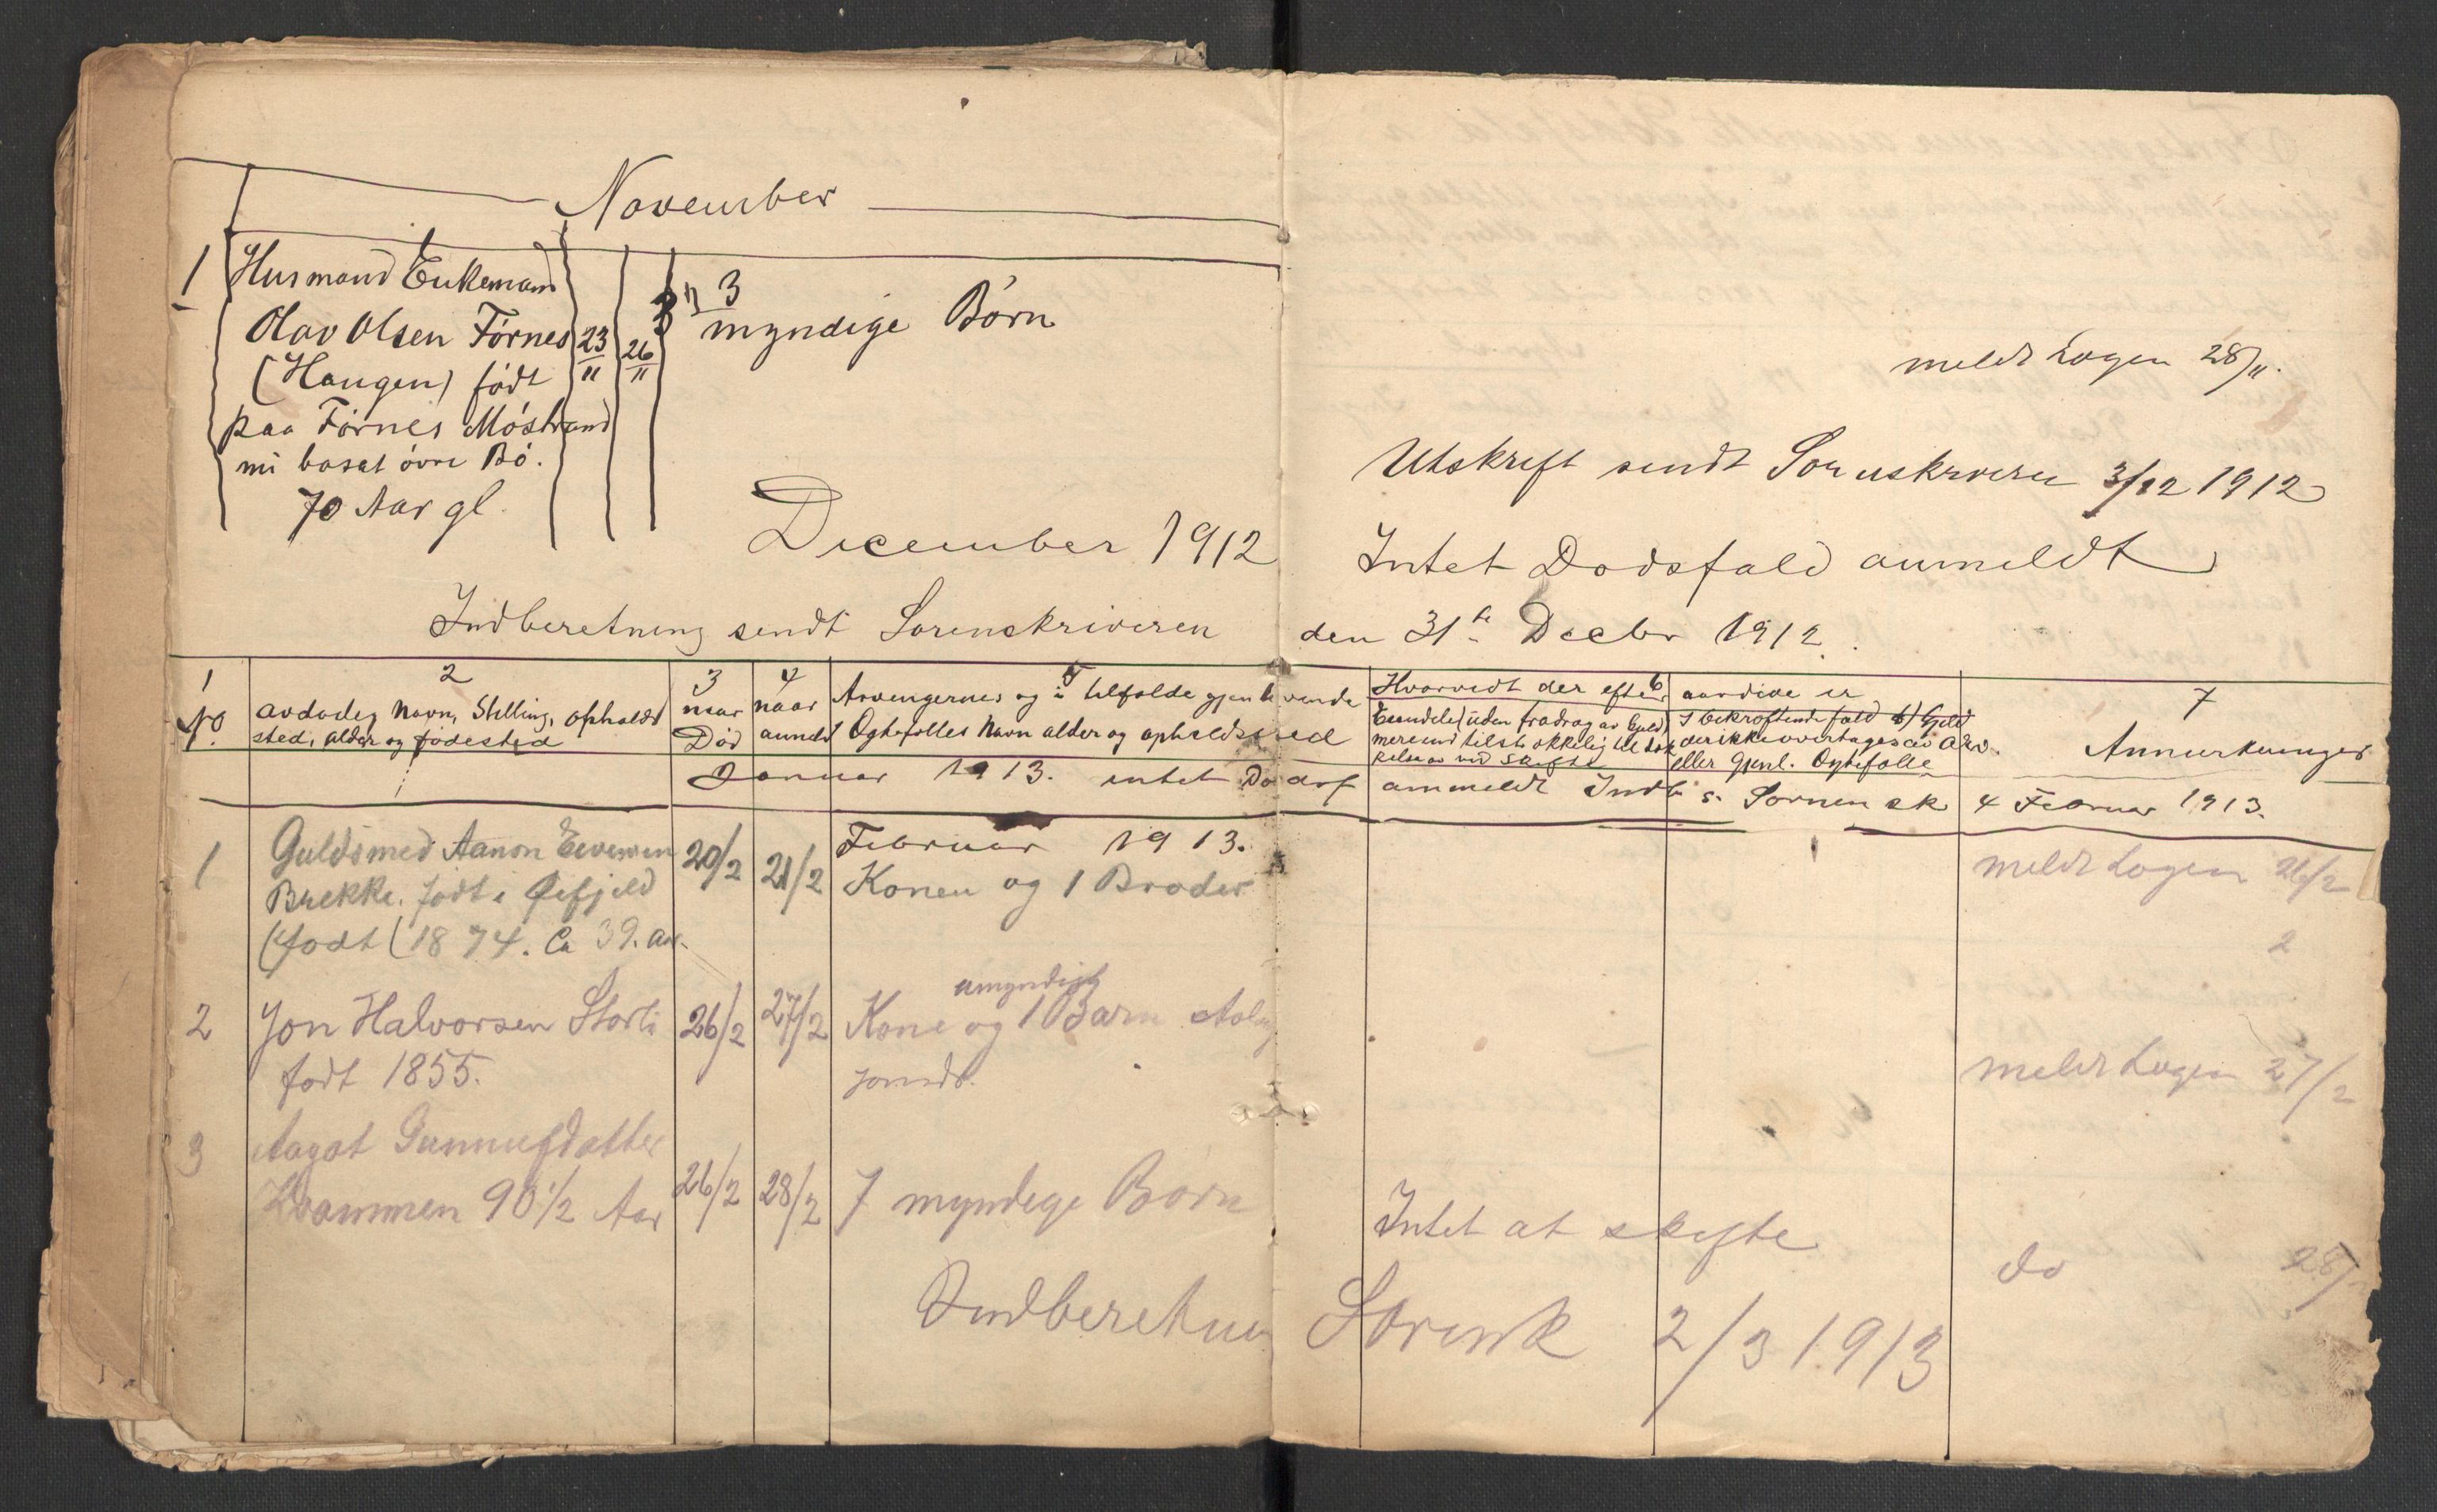 November
1 Husmand Enkemand
Olav Olsen Førnes 23/11 26/11 3 myndige Børn
(Haugen) født
paa Førnes Møstrand
nu bosat øvre Bø.
70 Aar gl.
meldt Logen 28/11.
Utskrift sendt Sorenskriveren 3/12 1912
December 1912 Intet Dødsfald anmeldt
Indberetning sendt Sorenskriveren den 31te Decbr 1912.
1 2 3 4 5 6 7
No. avdødes Navn, Stilling, opholds
sted, alder og fødested
naar
Død
naar
anmeldt
Arvengernes og i tilfælde gjenlevende
Ægtefælles Navn alder og opholdssted
Hvorvidt der efter avdøde er
Eiendele (uden fradrag av Gjeld)
mere end tilstrækkelig til dæk
kelse av
I bekræftende fald b) Gjeld
der ikke overtages av Arv.
eller Gjenl. Ægtefælle
Anmerkninger
Januar 1913. intet Dødsf anmeldt Indb s. Sorensk 4 Februar 1913.
Februar 1913.
1 Guldsmed Aanon 20/2 21/2 Konen og 1 Broder meldt Logen 26/2
Brekke. født i Øifjeld
(født (1874. Ca 39. aar. 2
umyndigt
2 Jon Halvorsen Storli 26/2 27/2 Kone og 1 Barn
født 1855. Jonsd. meldt Logen 27/2
3 Aagot Gunnufdatter
Kvammen 90 1/2 Aar 26/2 28/2 7 myndige Børn Intet at skifte
do 28/
Indberetning Sorensk 2/3 1913